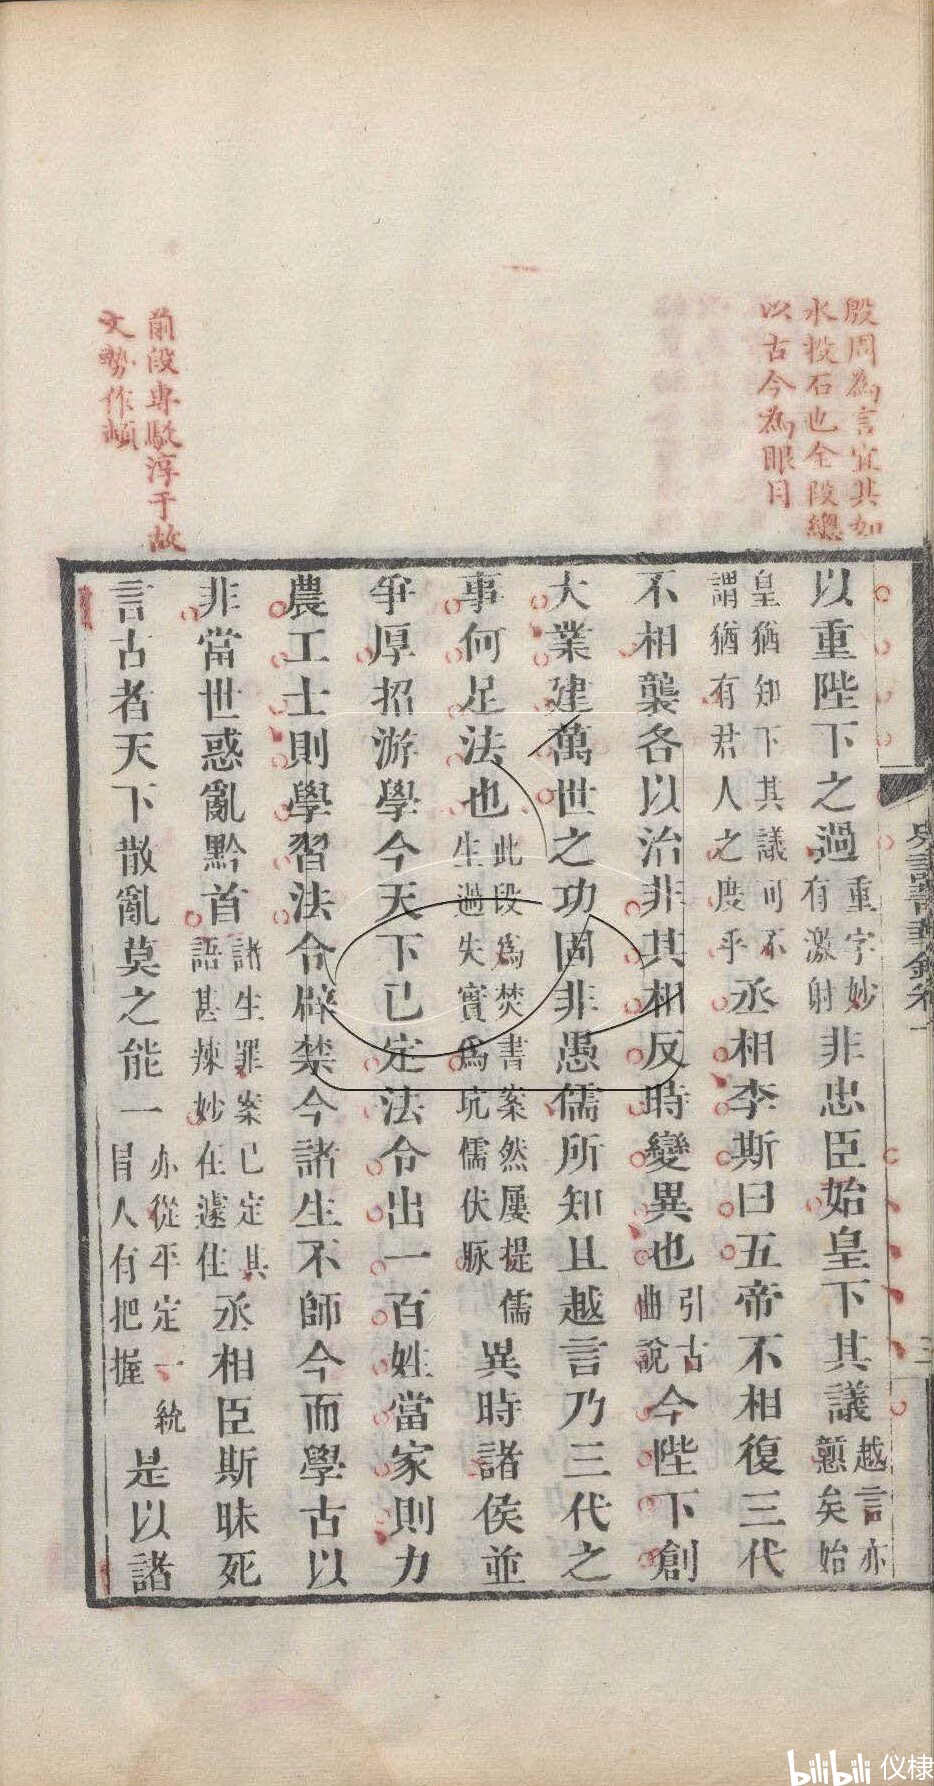 殷周為言宜其如
水投石也全段總
以古今為眼目
前段專駁淳于故
文勢作頓
以重陛下之過重字妙有激射非忠臣始皇下其議越言亦懟矣始
皇猶知下其議可不謂猶有君人之度乎丞相李斯曰五帝不相復三代
不相襲各以治非其相反時變異也引古曲說今陛下創
大業建萬世之功固非愚儒所知且越言乃三代之
事何足法也此段為焚書案然屢提儒生過失實為坑儒伏脈異時諸侯並
爭厚招游學今天下已定法令出一百姓當家則力
農工士則學習法令辟禁今諸生不師今而學古以
非當世惑亂黔首諸生罪案已定其語甚辣妙在遽住丞相臣斯昧死
言古者天下散亂莫之能一亦從平定一統冒人有把握是以諸
bilibili 仪棣